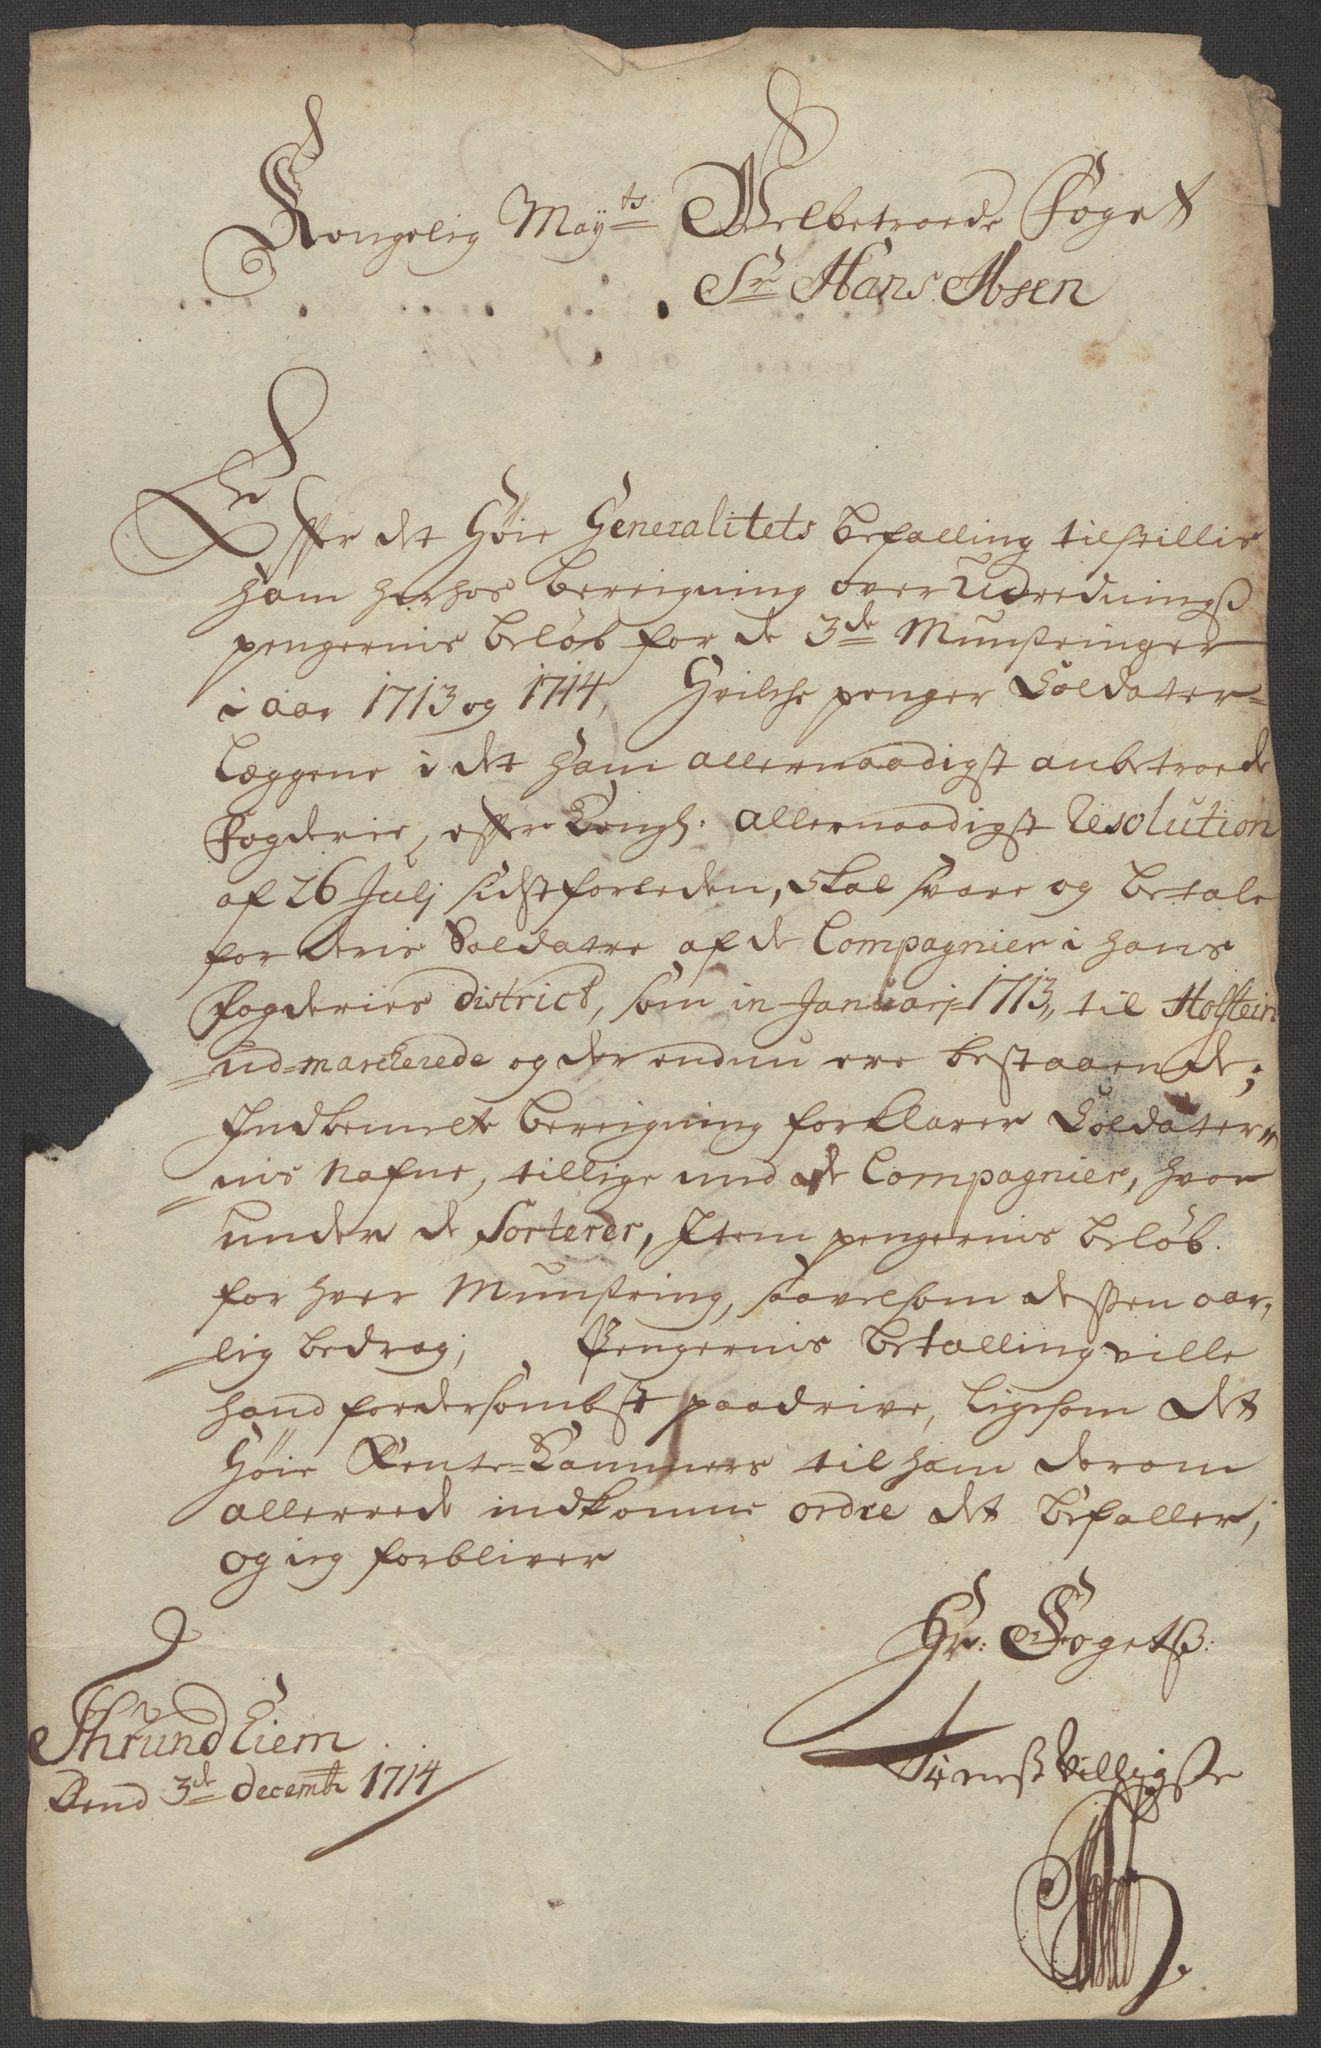 Kongelig Mayts Velbetroede Foget
Sr Hans Ibsen
Effter det Høie Generalitets befalling tilstillis
ham herhos bereigning over Udrednings
pengernis beløb for de 3de Munstringer
i aar 1713 og 1714, Hvilche penger Soldater-
Læggene i det ham allernaadigst anbetroede
Fogderie, effter Kongl: allernaadigst Resolution
af 26 Julj sidstforleden, skal svare og betale
for deris Soldatre af de Compagnier i hans
Fogderies district, som in Januarj 1713, til Holstein
ud-marcherede og der endnu ere bestaaende;
Indbemelte bereigning forklarer Soldater-
nis nafne, tillige med de Compagnier, hvor
under de Sorterer, Item pengernis beløb
for hver Munstring, saavelsom dessen aar-
lig bedrag; Pengernis betalling ville
hand fordersombst paadrive, ligesom det
Høie Rente-Kammers til ham derom
allerrede indkomne ordre det befaller,
og ieg forbliver
Hr: Fogetß:
Tienstvilligste
Thrundhiem
Dend 3de decembr 1714